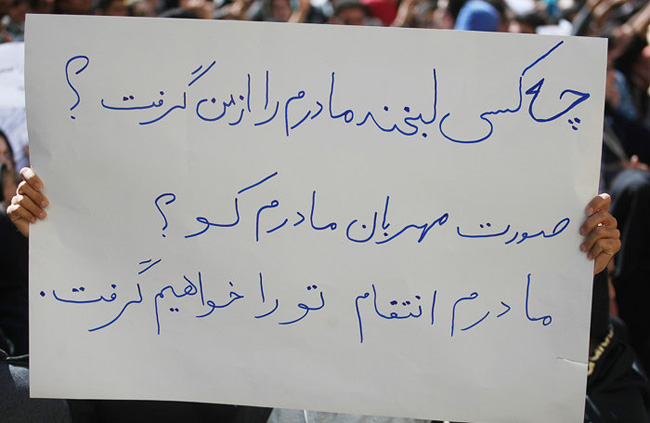 چه کسی لبخند مادرم را از من گرفت ؟
صورت مهربان مادرم کو ؟
مادرم انتقام تو را خواهیم گرفت .